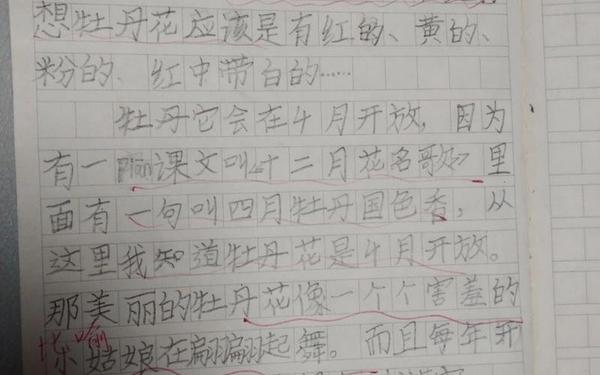 想牡丹花应该是有红的、黄的、
粉的、红中带白的……
牡丹它会在4月开放,因为
有一pian课文叫《十二月花名歌》里
面有一句叫四月牡丹国色香,从
这里我知道牡丹花是4月开放。
那美丽的牡丹花像一个个害羞的
小姑娘在翩翩起舞。而且每年开
比喻